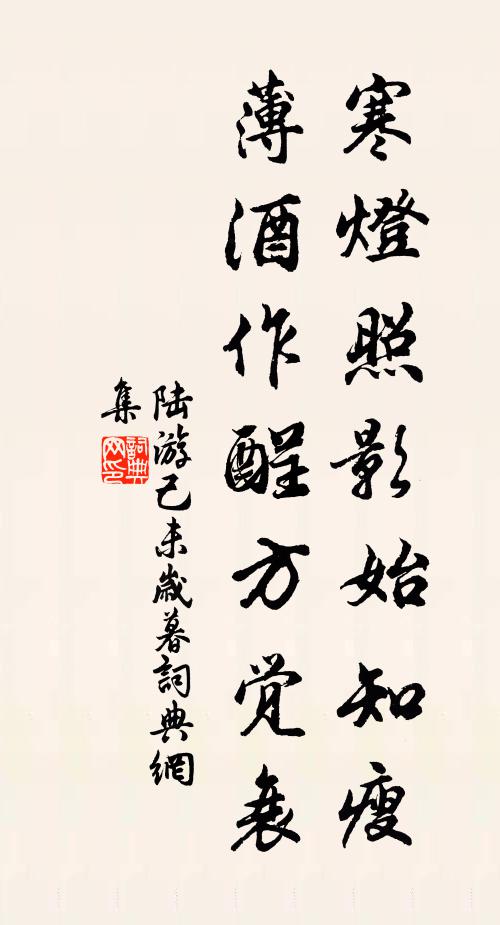 寒燈照影始知瘦
薄酒作醒方覺衰
陆游己未歲暮詞典網
集
詞典网印